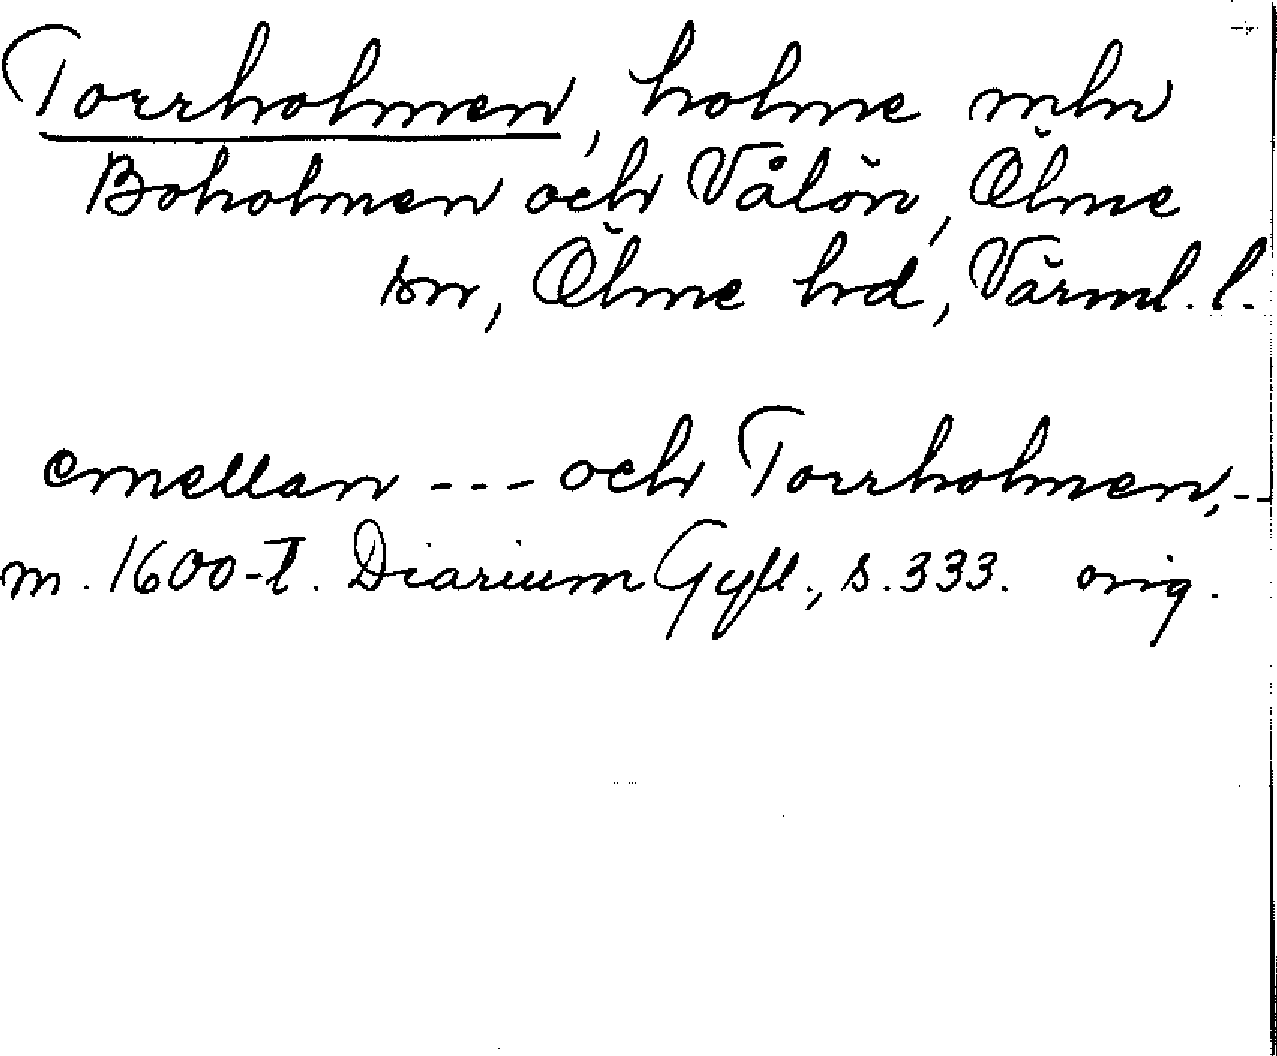 Torrholmen, holme mln
Boholmen och Vålön, Ölme
sn, Ölme hd, Värml. l.
emellan --- och Torrholmen, --
m. 1600-t. Diarium Gyll., s. 333. orig.